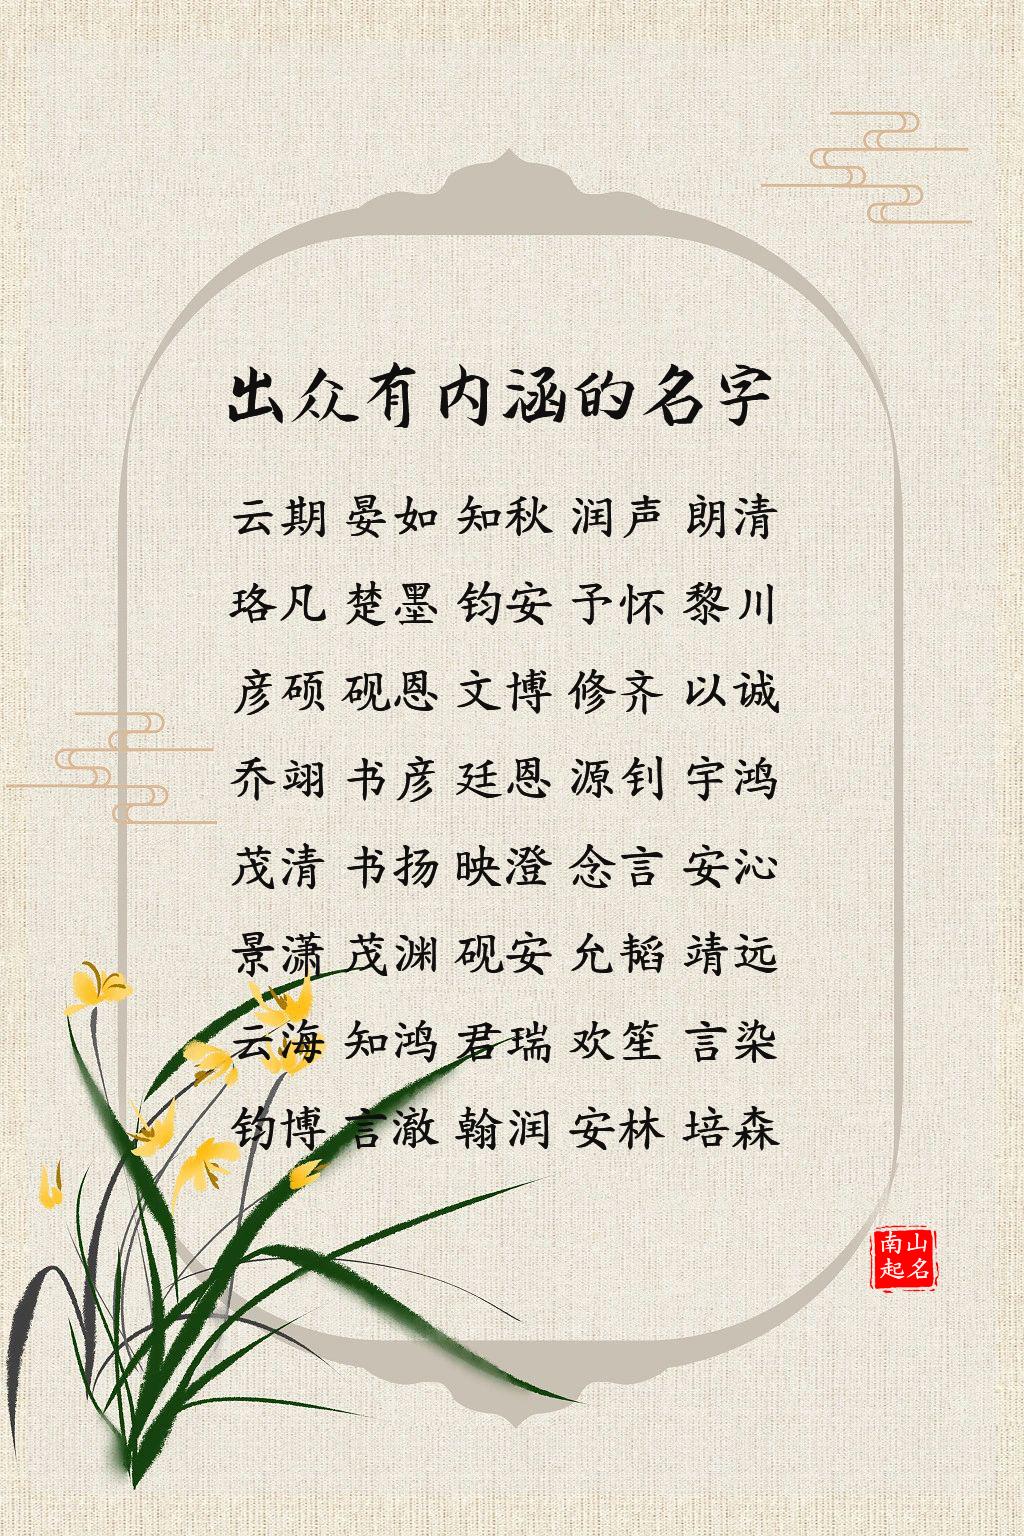 出众有内涵的名字
云期 晏如 知秋 润声 朗清
珞凡 楚墨 钧安 予怀 黎川
彦硕 砚恩 文博 修齐 以诚
乔翊 书彦 廷恩 源钊 宇鸿
茂清 书扬 映澄 念言 安沁
景潇 茂渊 砚安 允韬 靖远
云海 知鸿 君瑞 欢笙 言染
钧博 言澈 翰润 安林 培森
南山
起名